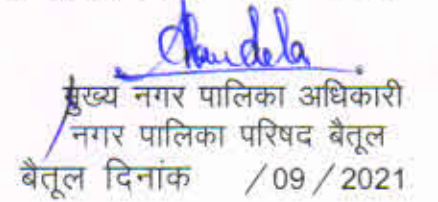 मुख्य नगर पालिका अधिकारी
नगर पालिका परिषद बैतूल
बैतूल दिनांक /09/2021